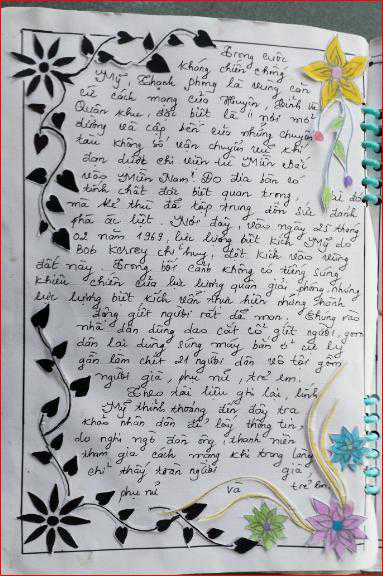 Trong cuộc
kháng chiến chống
Mỹ, Thạnh Phong là vùng căn
cứ cách mạng của Huyện, Tỉnh và
Quân khu, đặc biệt là "nơi mở
đường và cấp bến của những chuyến
tàu không số vận chuyển vũ khí
đạn dược chi viện từ Miền Bắc
vào Miền Nam". Do địa bàn có
tính chất đặc biệt quan trọng,
mà kẻ thù đã tập trung dồn sức đánh
phá ác liệt. Nơi đây, vào ngày 25 tháng
02 năm 1969, lực lượng biệt kích Mỹ do
Bob Kerrey chỉ huy, đột kích vào vùng
đất này. Trong bối cảnh không có tiếng súng
khiêu chiến của lực lượng quân giải phóng nhưng
lực lượng biệt kích vẫn thực hiện những hành
động giết người rất dã man. Chúng vào
nhà dân dùng dao cắt cổ giết người, gom
dân lại dùng súng máy bắn ở cự ly
gần làm chết 21 người dân vô tội gồm
người già, phụ nữ, trẻ em.
Theo tài liệu ghi lại, lính
Mỹ thỉnh thoảng đến đây tra
khảo nhân dân để lấy thông tin,
do nghi ngờ đàn ông, thanh niên
tham gia cách mạng khi trong làng
chỉ thấy toàn người già
phụ nữ và trẻ em